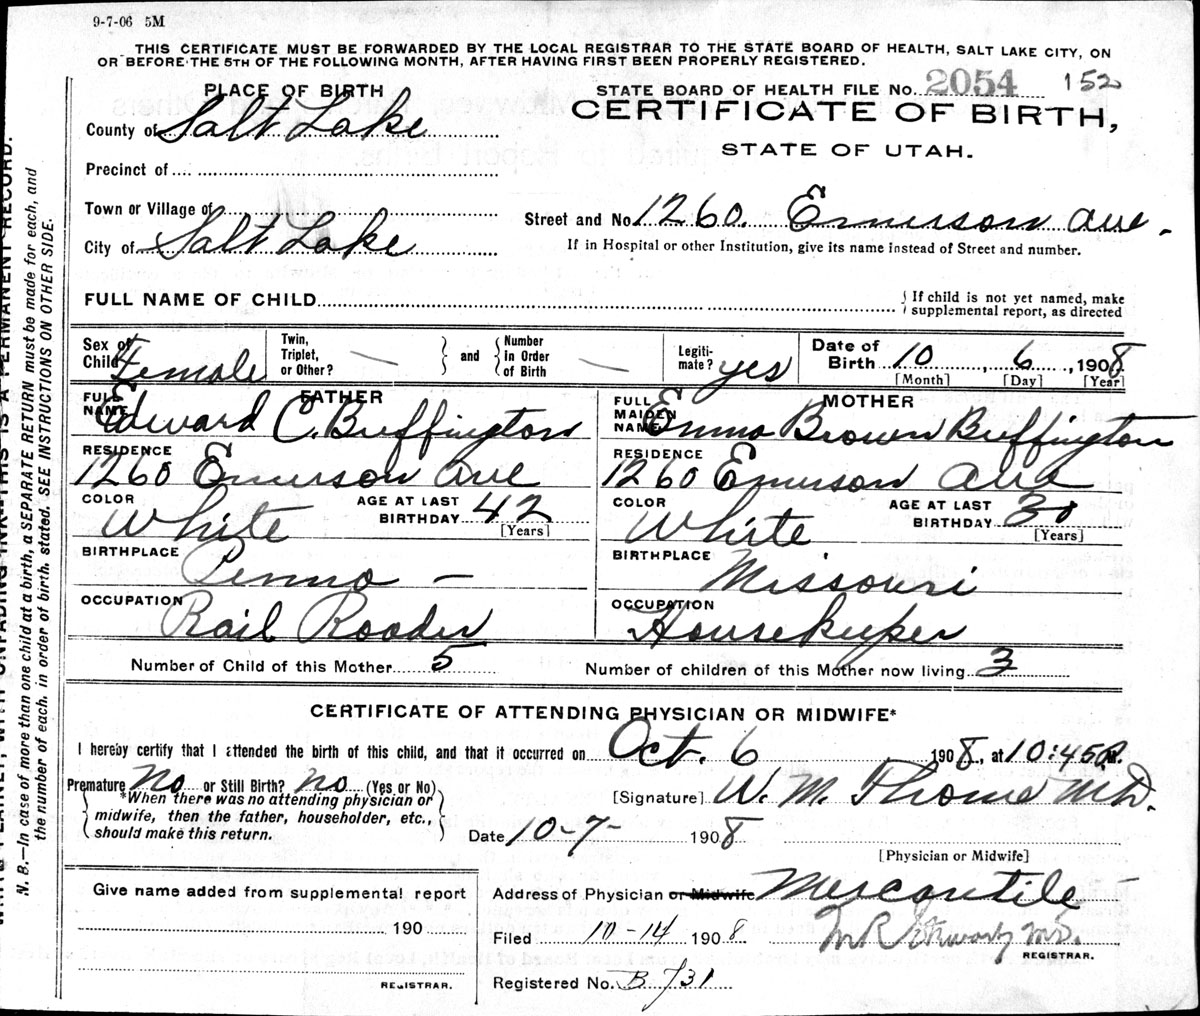 9-7-06 5M
THIS CERTIFICATE MUST BE FORWARDED BY THE LOCAL REGISTRAR TO THE STATE BOARD OF HEALTH, SALT LAKE CITY, ON
OR BEFORE THE 5TH OF THE FOLLOWING MONTH, AFTER HAVING FIRST BEEN PROPERLY REGISTERED.
PLACE OF BIRTH
STATE BOARD OF HEALTH FILE No. 2054 152
County of Salt Lake
CERTIFICATE OF BIRTH,
STATE OF UTAH.
Precinct of
Town or Village of
Street and No. 1260. Emerson ave.
City of Salt Lake
If in Hospital or other Institution, give its name instead of Street and number.
FULL NAME OF CHILD
If child is not yet named, make
supplemental report, as directed
Sex of Child Female
Twin, Triplet, or Other? —
and
Number in Order of Birth —
Legitimate? yes
Date of Birth 10, 6, 1908
[Month] [Day] [Year]
FATHER
FULL NAME Edward C. Buffington
MOTHER
FULL MAIDEN NAME Emma Brown Buffington
RESIDENCE
1260 Emerson ave
RESIDENCE
1260 Emerson ave
COLOR White
AGE AT LAST BIRTHDAY 42
[Years]
COLOR White
AGE AT LAST BIRTHDAY 30
[Years]
BIRTHPLACE Penna —
BIRTHPLACE Missouri
OCCUPATION Rail Roader
OCCUPATION Housekeeper
Number of Child of this Mother 5
Number of children of this Mother now living 3
CERTIFICATE OF ATTENDING PHYSICIAN OR MIDWIFE*
I hereby certify that I attended the birth of this child, and that it occurred on Oct. 6 1908, at 10:45 P.M.
Premature No or Still Birth? no (Yes or No)
*When there was no attending physician or
midwife, then the father, householder, etc.,
should make this return.
[Signature] W. M. Thome M.D.
Date 10-7- 1908
[Physician or Midwife]
Give name added from supplemental report
190
REGISTRAR.
Address of Physician or Midwife Mercantile
Filed 10-14 1908 M R Stewart M.D.
REGISTRAR.
Registered No. B 731
WRITE PLAINLY, WITH UNFADING INK—THIS IS A PERMANENT RECORD.
N. B.—In case of more than one child at a birth, a SEPARATE RETURN must be made for each, and
the number of each, in order of birth, stated. SEE INSTRUCTIONS ON OTHER SIDE.